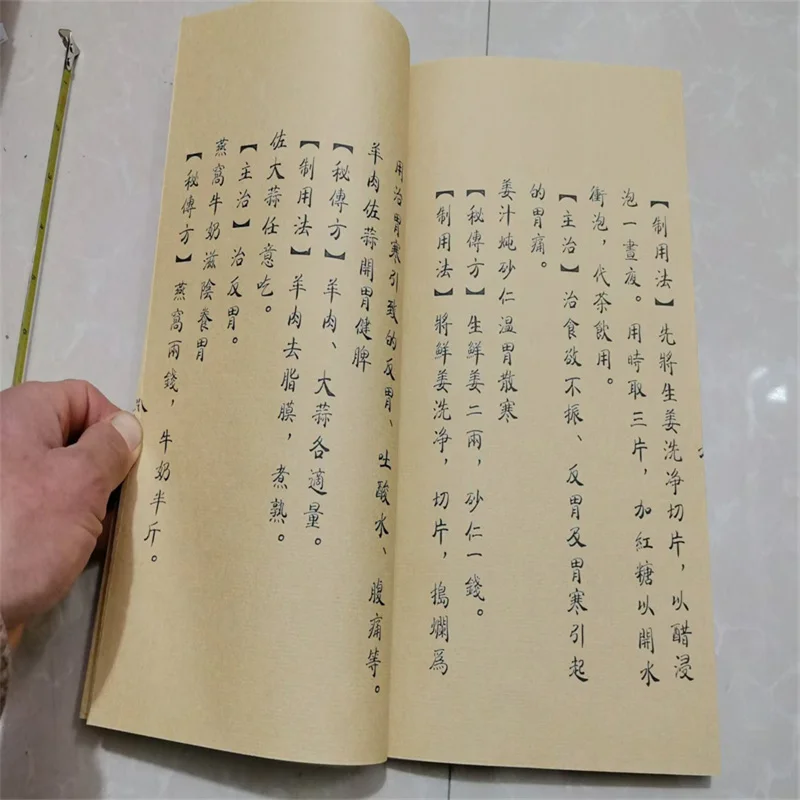 【制用法】先將生姜洗净切片，以醋浸
泡一晝夜。用時取三片，加紅糖以開水
衝泡，代茶飲用。
【主治】治食欲不振、反胃及胃寒引起
的胃痛。
姜汁炖砂仁温胃散寒
【秘傳方】生鮮姜二兩，砂仁一錢。
【制用法】將鮮姜洗净，切片，搗爛爲
用治胃寒引致的反胃、吐酸水、腹痛等。
羊肉佐蒜開胃健脾
【秘傳方】羊肉、大蒜各適量。
【制用法】羊肉去脂膜，煮熟。
佐大蒜任意吃。
【主治】治反胃。
燕窩牛奶滋陰養胃
【秘傳方】燕窩兩錢，牛奶半斤。